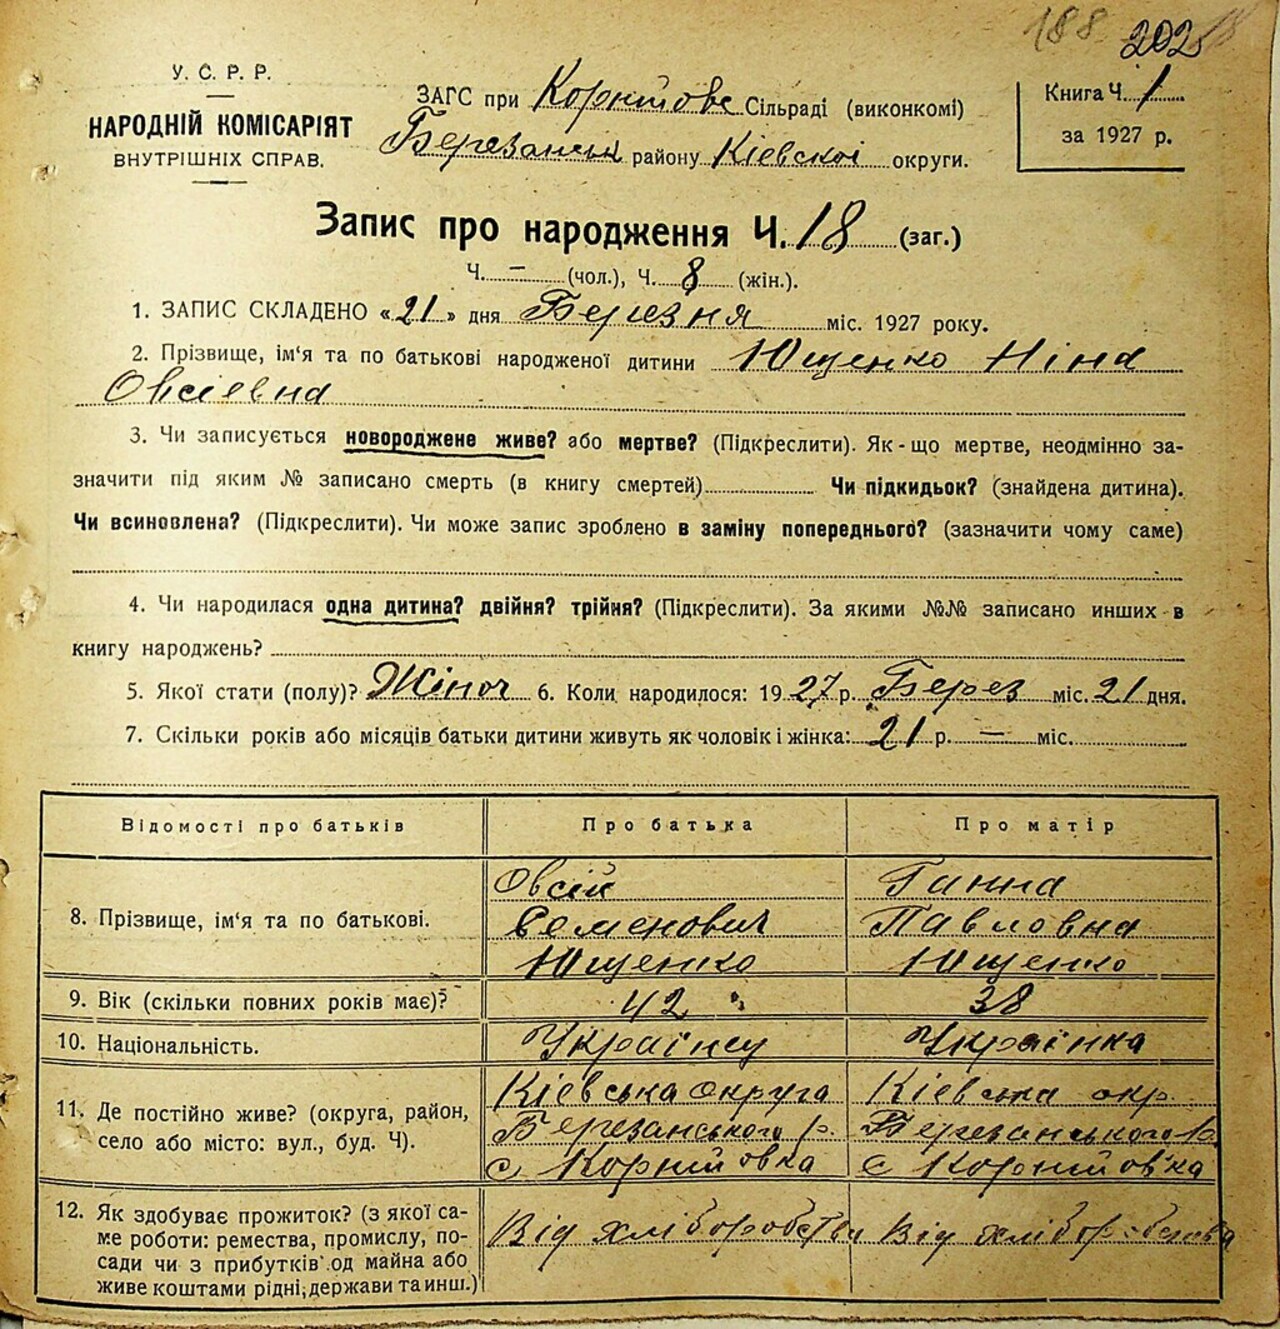 188 202
У. С. Р. Р.
НАРОДНІЙ КОМІСАРІЯТ
ВНУТРІШНІХ СПРАВ.
ЗАГС при Корнїіове Сільраді (виконкомі)
Березанськ району Кіевскоі округи.
Книга Ч. 1
за 1927 р.
Запис про народження Ч. 18 (заг.)
Ч. — (чол.), Ч. 8 (жін.).
1. ЗАПИС СКЛАДЕНО «21» дня Березня міс. 1927 року.
2. Прізвище, ім‘я та по батькові народженої дитини Ющенко Ніна
Овсіевна
3. Чи записується новороджене живе? або мертве? (Підкреслити). Як-що мертве, неодмінно за-
значити під яким № записано смерть (в книгу смертей) Чи підкидьок? (знайдена дитина).
Чи всиновлена? (Підкреслити). Чи може запис зроблено в заміну попереднього? (зазначити чому саме)
4. Чи народилася одна дитина? двійня? трійня? (Підкреслити). За якими №№ записано инших в
книгу народжень?
5. Якої стати (полу)? Жіноч 6. Коли народилося: 1927 р. Берез міс. 21 дня.
7. Скільки років або місяців батьки дитини живуть як чоловік і жінка: 21 р. — міс.
Відомості про батьків Про батька Про матір
8. Прізвище, ім‘я та по батькові.
Овсій Ганна
Семенович Павловна
Ющенко Ющенко
9. Вік (скільки повних років має)? 42 38
10. Національність. Українец Українка
11. Де постійно живе? (округа, район,
село або місто: вул., буд. Ч).
Кіевська округа Кіевська окр.
Березанського р. Березанського р.
с Корнійовка с Корнійовка
12. Як здобуває прожиток? (з якої са-
ме роботи: ремества, промислу, по-
сади чи з прибутків од майна або
живе коштами рідні, держави та инш.)
Від хліборобства Від хліборобства